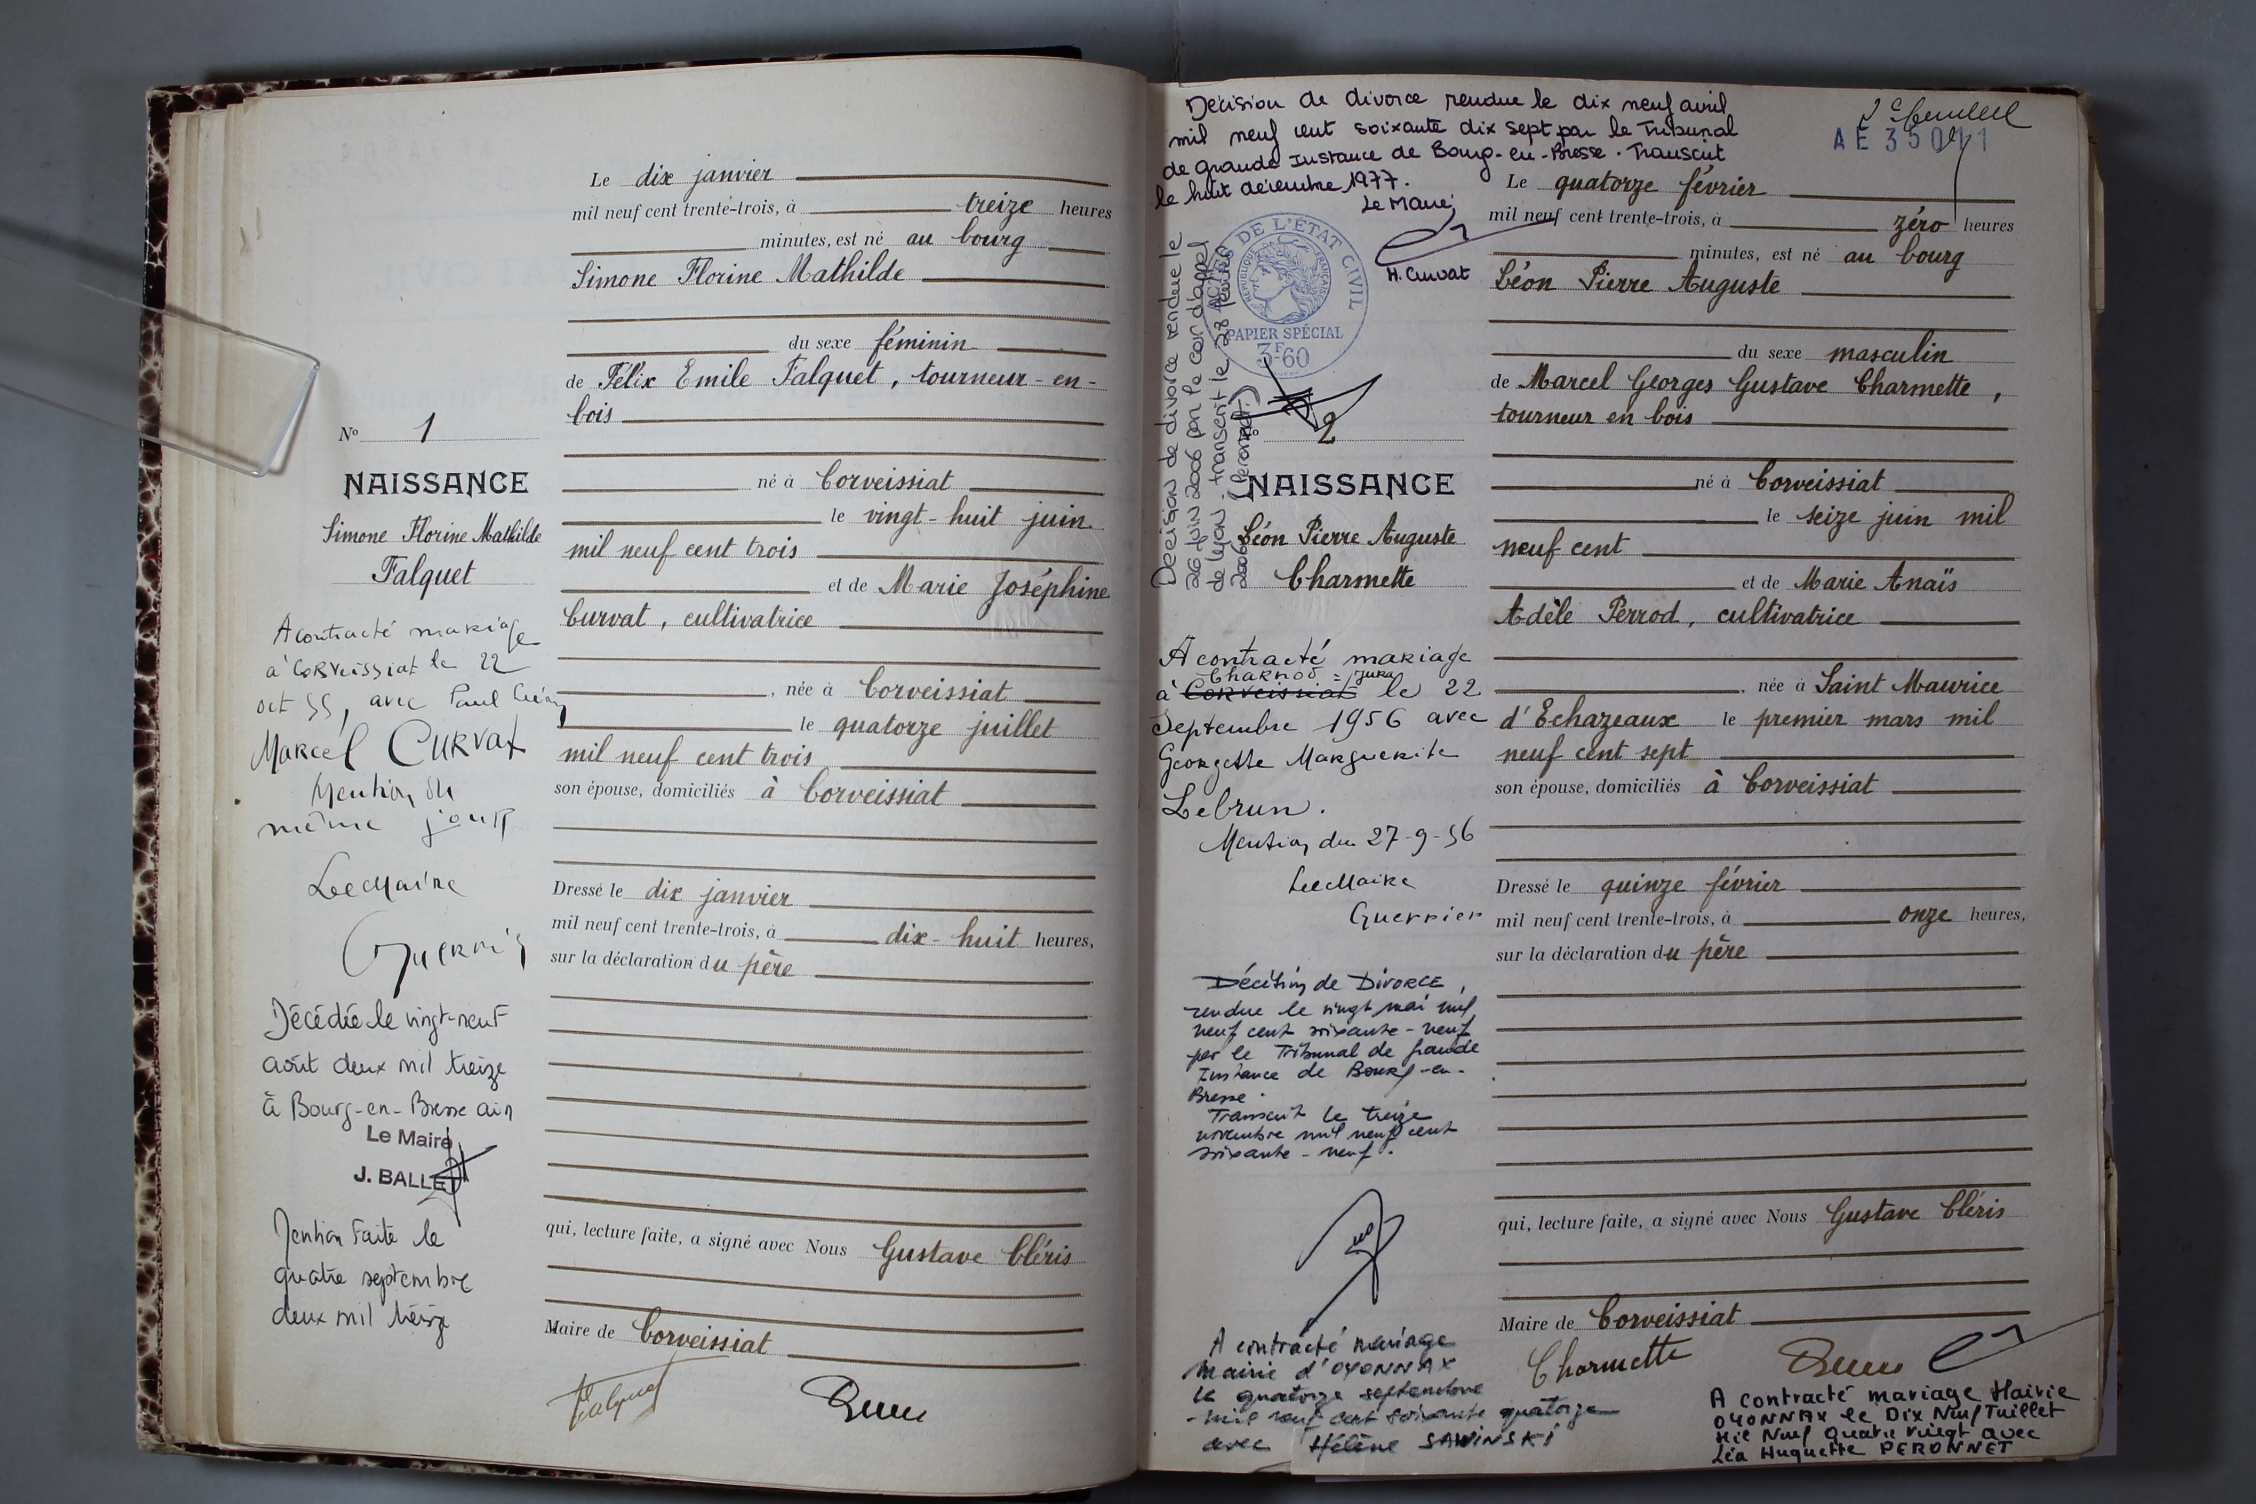 Le dix janvier
mil neuf cent trente-trois, à treize heures
minutes, est né au bourg
Simone Florine Mathilde
du sexe féminin
de Félix Emile Falquet, tourneur-en-
bois
né à Corveissiat
le vingt-huit juin
mil neuf cent trois
et de Marie Joséphine
Curvat, cultivatrice
, née à Corveissiat
le quatorze juillet
mil neuf cent trois
son épouse, domiciliés à Corveissiat
Dressé le dix janvier
mil neuf cent trente-trois, à dix-huit heures,
sur la déclaration du père
qui, lecture faite, a signé avec Nous Gustave Cléris
Maire de Corveissiat
Falquet
No 1
NAISSANCE
Simone Florine Mathilde
Falquet
A contracté mariage
à Corveissiat le 22
oct 55, avec Paul
Marcel CURVAT
Mention du
même jour
Le Maire
Guerrier
Décédée le vingt-neuf
août deux mil treize
à Bourg-en-Bresse ain
Le Maire
J. BALLET
Mention Faite le
quatre septembre
deux mil treize
Décision de divorce rendue le dix neuf avril
mil neuf cent soixante dix sept par le Tribunal
de grande Instance de Bourg-en-Bresse. Transcrit
le huit décembre 1977.
Le Maire
H. Curvat
AE 35011
DE L'ÉTAT CIVIL
RÉPUBLIQUE FRANÇAISE
PAPIER SPÉCIAL
3F60
Décision de divorce rendue le
26 juin 2006 par le cour d'appel
de Lyon. transcrit le 28
2006 (Peronnet)
No 2
NAISSANCE
Léon Pierre Auguste
Charmette
A contracté mariage
Charnod = Jura
à Corveissiat le 22
Septembre 1956 avec
Georgette Marguerite
Lebrun.
Mention du 27-9-56
Le Maire
Guerrier
Décision de Divorce,
rendue le vingt mai mil
neuf cent soixante-neuf
par le Tribunal de Grande
Instance de Bourg-en-
Bresse.
Transcrit le treize
novembre mil neuf cent
soixante-neuf.
A contracté mariage
Mairie d'OYONNAX
le quatorze septembre
mil neuf cent soixante quatorze
avec Hélène SAWINSKI
Le quatorze février
mil neuf cent trente-trois, à zéro heures
minutes, est né au bourg
Léon Pierre Auguste
du sexe masculin
de Marcel Georges Gustave Charmette,
tourneur en bois
né à Corveissiat
le seize juin mil
neuf cent
et de Marie Anaïs
Adèle Perrod, cultivatrice
, née à Saint Maurice
d'Echazeaux le premier mars mil
neuf cent sept
son épouse, domiciliés à Corveissiat
Dressé le quinze février
mil neuf cent trente-trois, à onze heures,
sur la déclaration du père
qui, lecture faite, a signé avec Nous Gustave Cléris
Maire de Corveissiat
Charmette
A contracté mariage Mairie
OYONNAX le Dix Neuf Juillet
Mil Neuf Quatre Vingt avec
Léa Huguette PERONNET